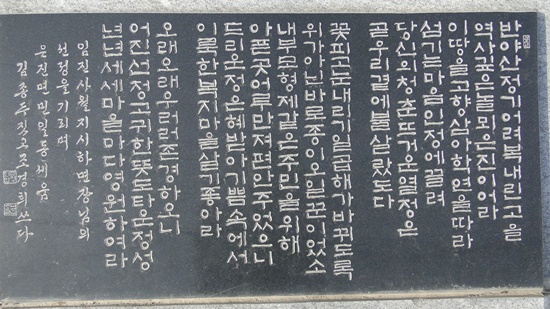 반야산정기어려복내린고을
역사깊은놀뫼은진이어라
이땅을고향삼아학연을따라
섬기는마음인정에끌려
당신의청춘뜨거운열정은
곧우리곁에불살랐도다
꽃피고눈내리기일곱해가바뀌도록
위가아닌바로종이오일꾼이었소
내부모형제같은주민을위해
아픈곳어루만져편안주었으니
드리운정은혜받아기쁨속에서
이룩한복지마을살기좋아라
오래오래우러러존경하오니
어진선정고귀한뜻도타운정성
년년세세마을마다영원하여라
임진사월지시하면장님의
선정을기리며
은진면민일동세움
김종득짓고조경희쓰다